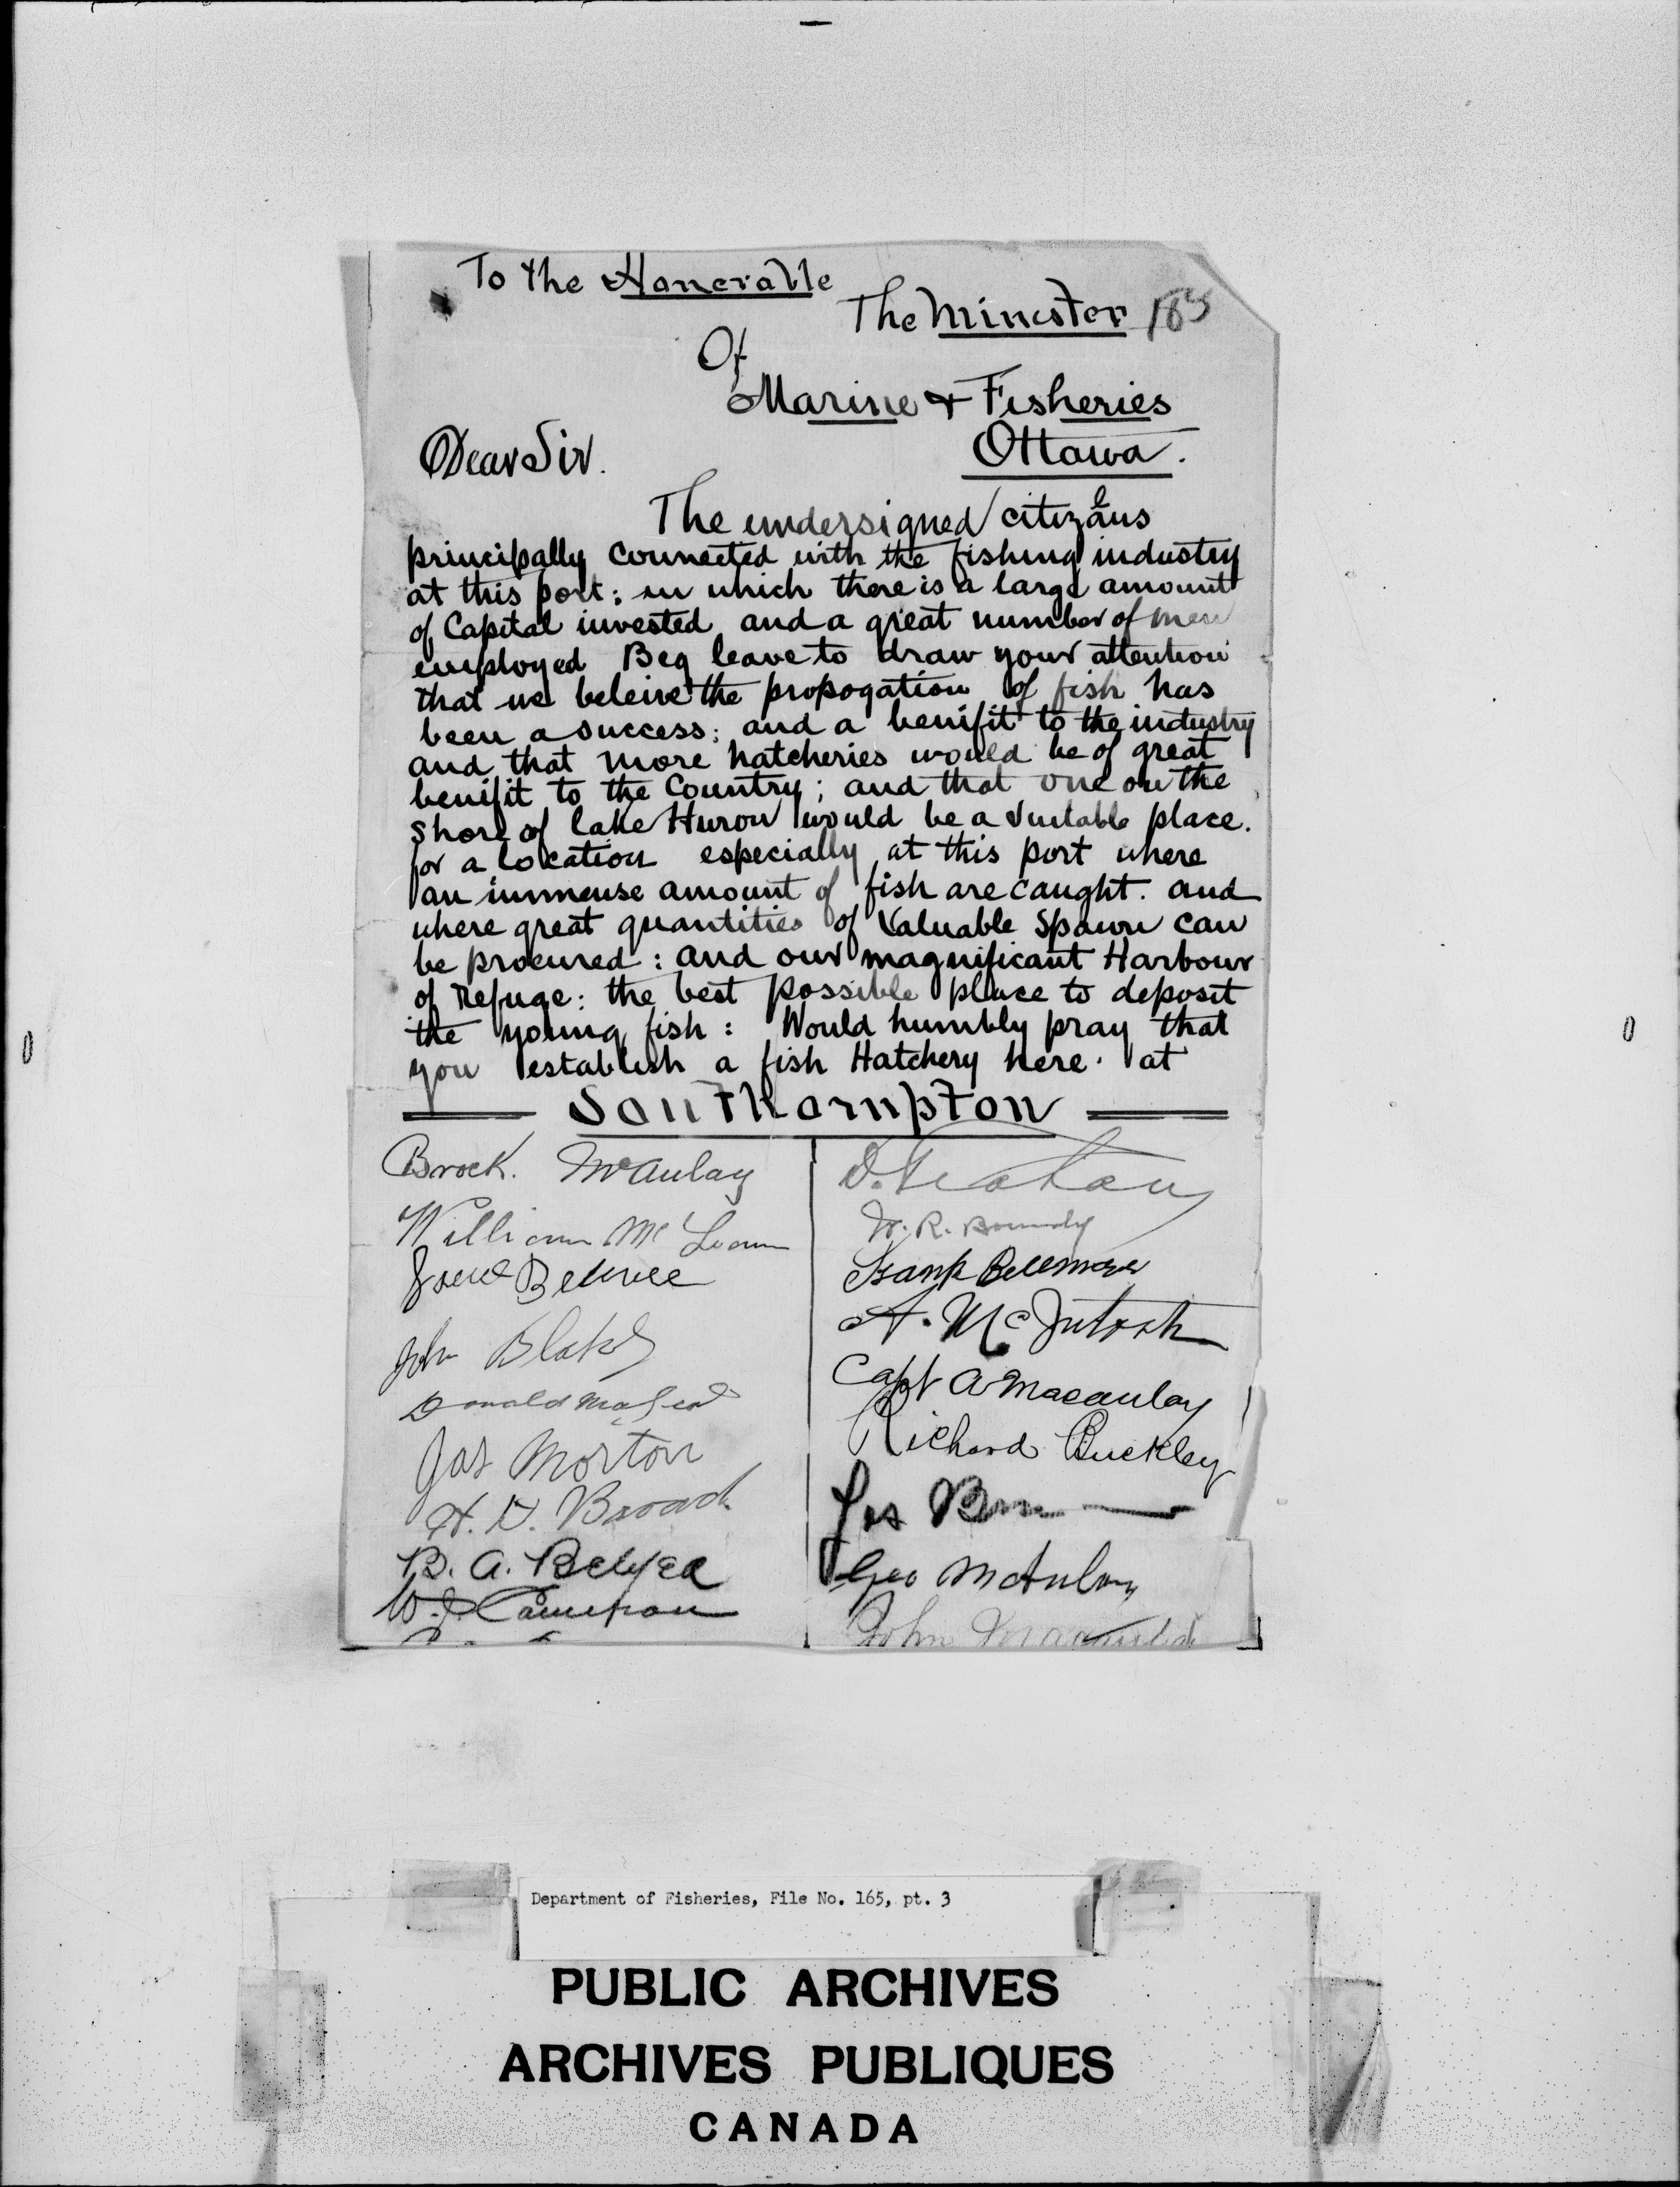 To the Honorable
The Minister 185
Of
Marine & Fisheries
Ottawa.
Dear Sir.
The undersigned citizens
principally connected with the fishing industry
at this port: in which there is a large amount
of Capital invested and a great number of men
employed Beg leave to draw your attention
that we beleive the propogation of fish has
been a success: and a benifit to the industry
and that more hatcheries would be of great
benifit to the Country; and that one on the
Shore of lake Huron would be a suitable place.
for a location especially at this port where
an immense amount of fish are caught. and
where great quantities of Valuable Spawn can
be procured: and our magnificant Harbour
of Refuge: the best possible place to deposit
the young fish: Would humbly pray that
you establish a fish Hatchery here. at
Southampton
Brock. McAulay
William Mc
John Blake
Donald
Jas Morton
H. D. Broad
B. A. Belyea
W. J. Cameron
W. R. Boundy
Frank Bellmore
A. McIntosh
Capt A Macaulay
Richard Buckley
Jas
Geo McAulay
John
Department of Fisheries, File No. 165, pt. 3
PUBLIC ARCHIVES
ARCHIVES PUBLIQUES
CANADA